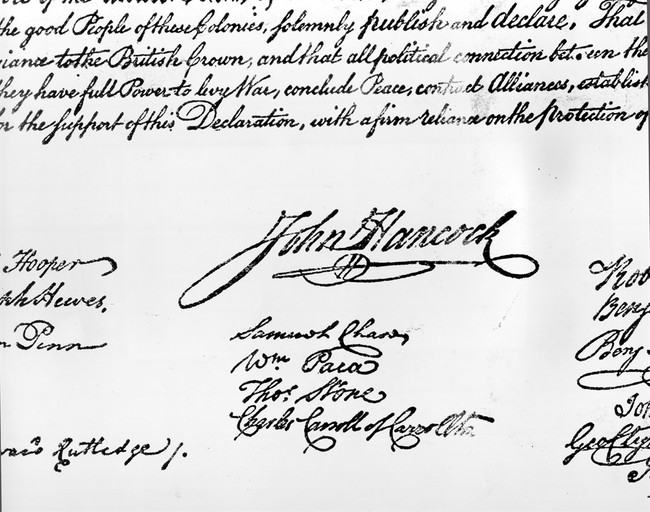 the good People of these Colonies, solemnly publish and declare, That
iance to the British Crown, and that all political connection bet een the
they have full Power to levy War, conclude Peace, contract Alliances, establish
or the support of this Declaration, with a firm reliance on the protection of
John Hancock
Hooper
ph Hewes,
n Penn
Samuel Chase
Wm. Paca
Thos. Stone
Charles Carroll of Carrollton
ward Rutledge /.
Rob
Benj
Benj
Joh
Geo Cly